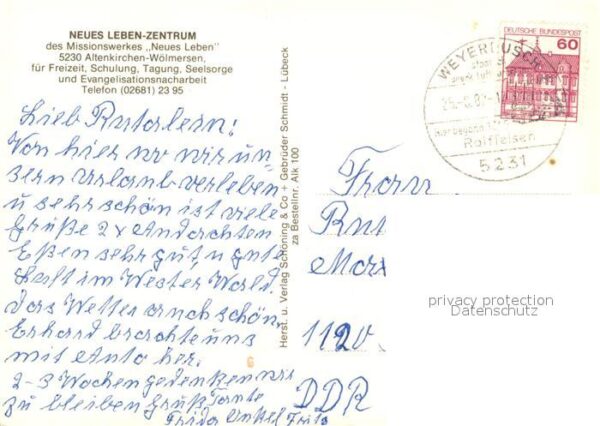 NEUES LEBEN-ZENTRUM
des Missionswerkes „Neues Leben"
5230 Altenkirchen-Wölmersen,
für Freizeit, Schulung, Tagung, Seelsorge
und Evangelisationsnacharbeit
Telefon (02681) 23 95
Von hier wo wir un-
sern Urlaub verleben
u sehr schön ist viele
Grüße 2 x Andachten
Eßen sehr gut u gute
Luft im Wester Wald.
das Wetter auch schön,
Erhard brachte uns
mit Auto her.
2-3 Wochen gedenken wir
zu bleiben Gruß Tante
Frida Onkel Fritz
6
Herst. u. Verlag Schöning & Co + Gebrüder Schmidt - Lübeck
za Bestellnr. Alk 100
DEUTSCHE BUNDESPOST
60
WEYERBUSCH
Hier begann
Raiffeisen
5231
Frau
Rut
1120
DDR
privacy protection
Datenschutz